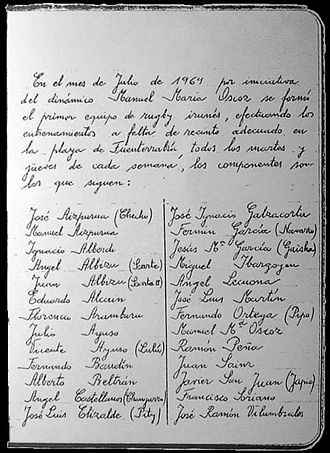 En el mes de Julio de 1964 por iniciativa
del dinámico Manuel Maria Oscoz se formó
el primer equipo de rugby irunés, efectuando los
entrenamientos a falta de recinto adecuado en
la playa de Fuenterrabía todos los martes y
jueves de cada semana, los componentes son
los que siguen:
José Aizpurua (Chechu)
Manuel Aizpurua
Ignacio Alberdi
Angel Albizu
Juan Albizu
Eduardo Alcain
Florencio Aramburu
Julio Ayuso
Vicente Ayuso (Lulú)
Fernando Baudin
Alberto Beltrán
Angel Castellanos
José Luis Elizalde (Pity)
José Ignacio Galzacorta
Fermín García (Navarro)
Jesús Mª García (Gaiska)
Miguel Ibargoyen
Angel Lecuona
José Luis Martín
Fernando Ortega (Pipo)
Manuel Mª Oscoz
Ramón Peña
Juan Sainz
Javier San Juan
Francisco Soriano
José Ramón Vilumbrales